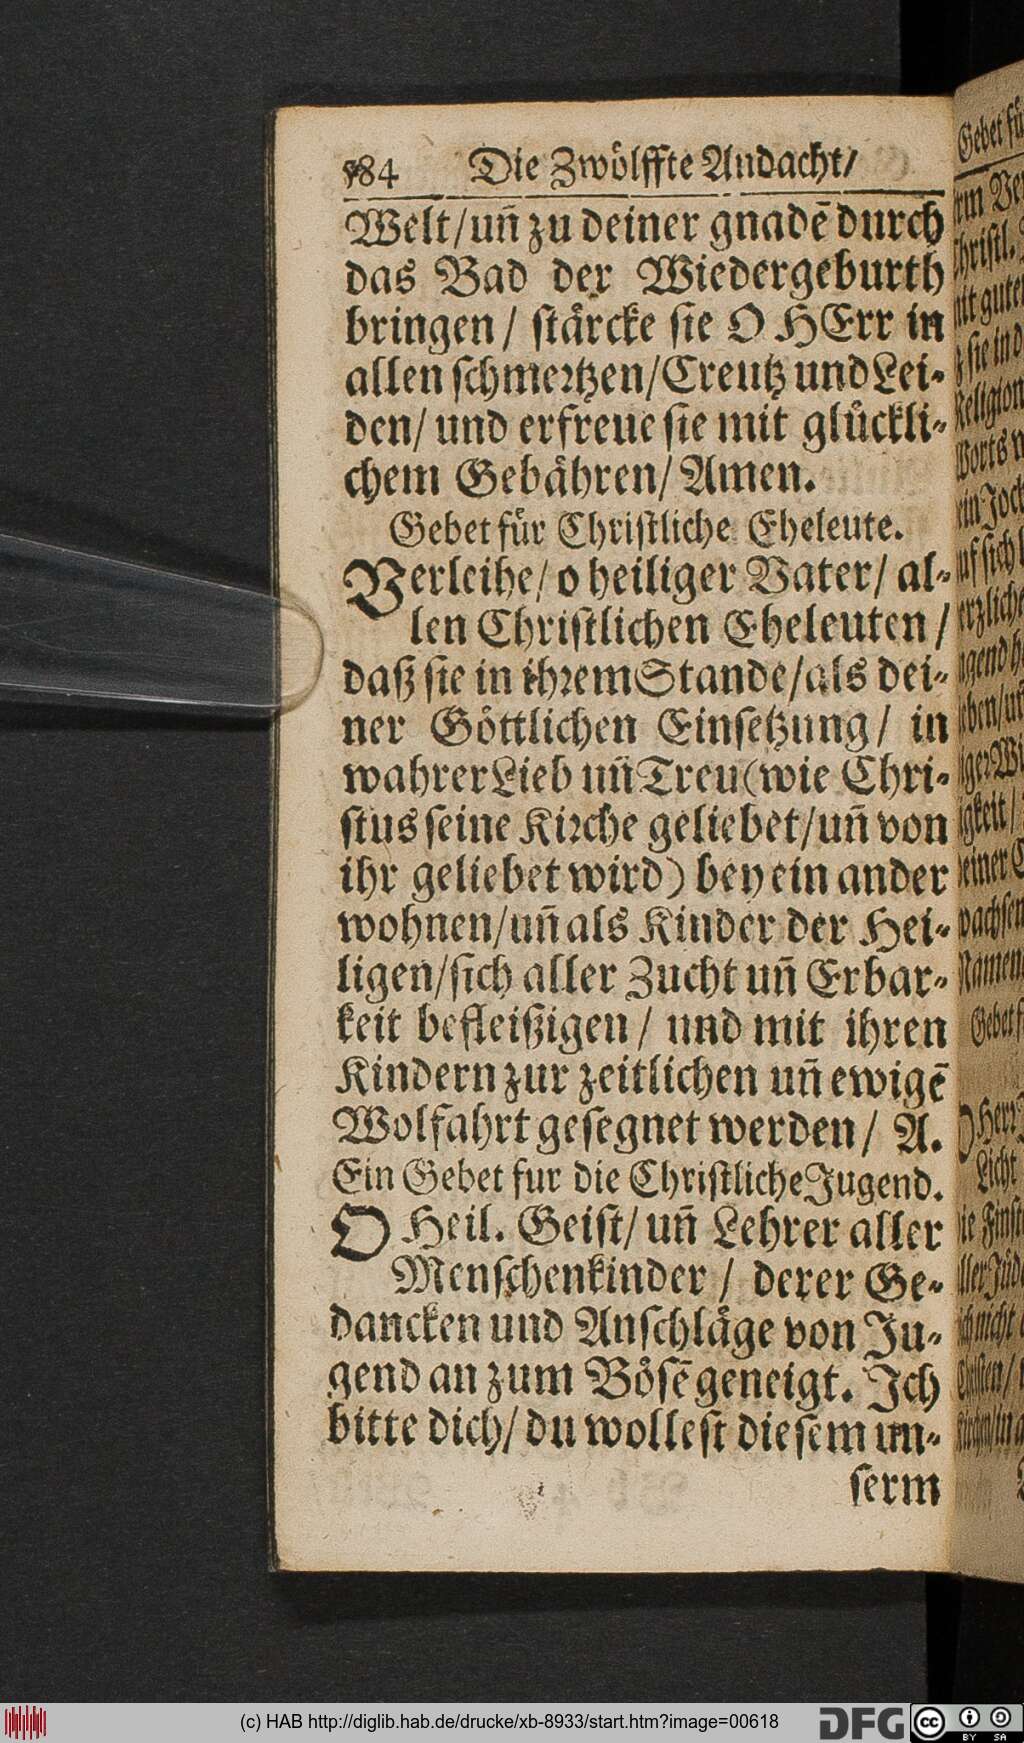 584 Die Zwölffte Andacht/
Welt/ uñ zu deiner gnadē durch
das Bad der Wiedergeburth
bringen / stärcke sie O HErr in
allen schmertzen/ Creutz und Lei-
den/ und erfreue sie mit glückli-
chem Gebähren/ Amen.
Gebet für Christliche Eheleute.
Verleihe/ o heiliger Vater/ al-
len Christlichen Eheleuten /
daß sie in ihrem Stande/ als dei-
ner Göttlichen Einsetzung/ in
wahrer Lieb uñ Treu (wie Chri-
stus seine Kirche geliebet/ uñ von
ihr geliebet wird) bey ein ander
wohnen/ uñ als Kinder der Hei-
ligen/ sich aller Zucht uñ Erbar-
keit befleißigen / und mit ihren
Kindern zur zeitlichen uñ ewigē
Wolfahrt gesegnet werden/ A.
Ein Gebet fur die Christliche Jugend.
O Heil. Geist/ uñ Lehrer aller
Menschenkinder / derer Ge-
dancken und Anschläge von Ju-
gend an zum Bösē geneigt. Ich
bitte dich/ du wollest diesem un-
serm
(c) HAB http://diglib.hab.de/drucke/xb-8933/start.htm?image=00618
DFG
cc BY SA